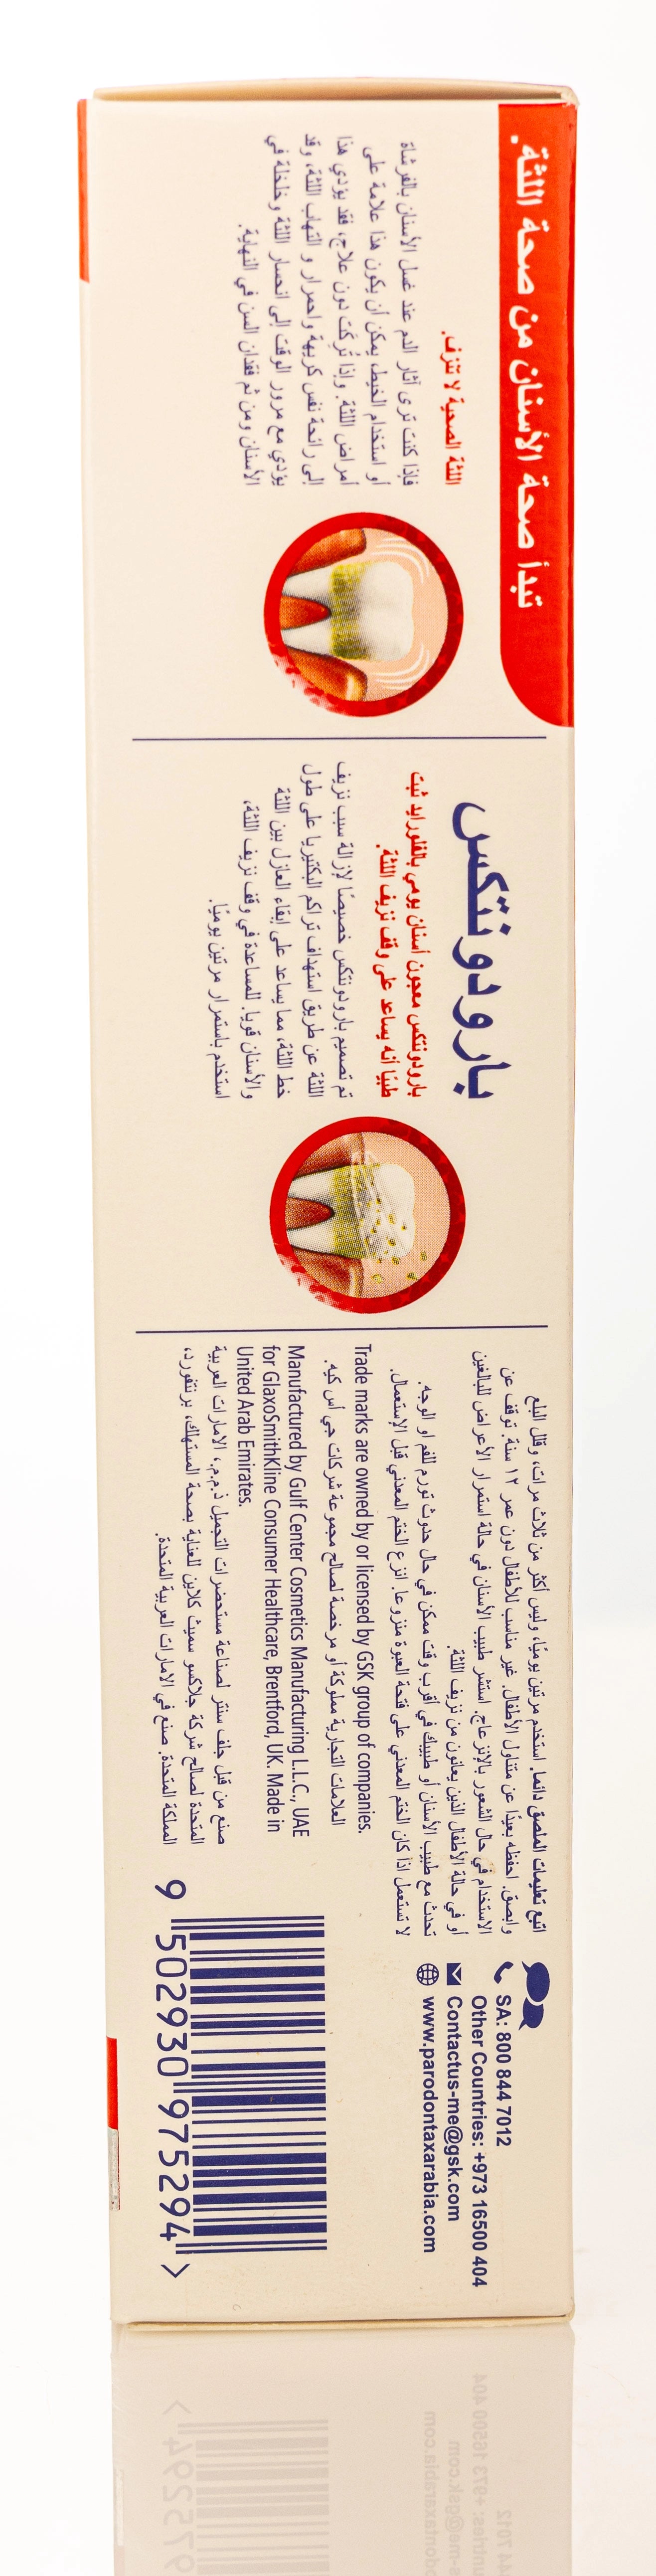 تبدأ صحة الأسنان من صحة اللثة.
اللثة الصحية لا تنزف.
فإذا كنت ترى آثار الدم عند غسل الأسنان بالفرشاة
أو استخدام الخيط، يمكن أن يكون هذا علامة على
أمراض اللثة. وإذا تُركت دون علاج، فقد يؤدي هذا
إلى رائحة نفس كريهة واحمرار و التهاب اللثة، وقد
يؤدي مع مرور الوقت إلى انحسار اللثة وخلخلة في
الأسنان ومن ثم فقدان السن في النهاية.
بارودونتكس
بارودونتكس معجون أسنان يومي بالفلورايد ثبت
طبيًا أنه يساعد على وقف نزيف اللثة.
تم تصميم بارودونتكس خصيصًا لإزالة سبب نزيف
اللثة عن طريق استهداف تراكم البكتيريا على طول
خط اللثة، مما يساعد على إبقاء العازل بين اللثة
والأسنان قويا. للمساعدة في وقف نزيف اللثة،
استخدم باستمرار مرتين يوميًا.
اتبع تعليمات الملصق دائما. استخدم مرتين يوميًا، وليس أكثر من ثلاث مرات، وقلل البلع
وابصق. احفظه بعيدًا عن متناول الأطفال. غير مناسب للأطفال دون عمر ١٢ سنة. توقف عن
الاستخدام في حال الشعور بالإنزعاج. استشر طبيب الأسنان في حالة استمرار الأعراض للبالغين
أو في حالة الأطفال الذين يعانون من نزيف اللثة.
تحدث مع طبيب الأسنان أو طبيبك في أقرب وقت ممكن في حال حدوث تورم للفم او الوجه.
لا تستعمل اذا كان الختم المعدني على فتحة العبوة منزوعا. انزع الختم المعدني قبل الإستعمال.
Trade marks are owned by or licensed by GSK group of companies.
العلامات التجارية مملوكة أو مرخصة لصالح مجموعة شركات جي أس كيه.
Manufactured by Gulf Center Cosmetics Manufacturing L.L.C., UAE
for GlaxoSmithKline Consumer Healthcare, Brentford, UK. Made in
United Arab Emirates.
صنع من قبل جلف سنتر لصناعة مستحضرات التجميل ذ.م.م.، الامارات العربية
المتحدة لصالح شركة جلاكسو سميث كلاين للعناية بصحة المستهلك، برنتفورد،
المملكة المتحدة. صنع في الامارات العربية المتحدة.
SA: 800 844 7012
Other Countries: +973 16500 404
Contactus-me@gsk.com
www.parodontaxarabia.com
9 502930 975294 >